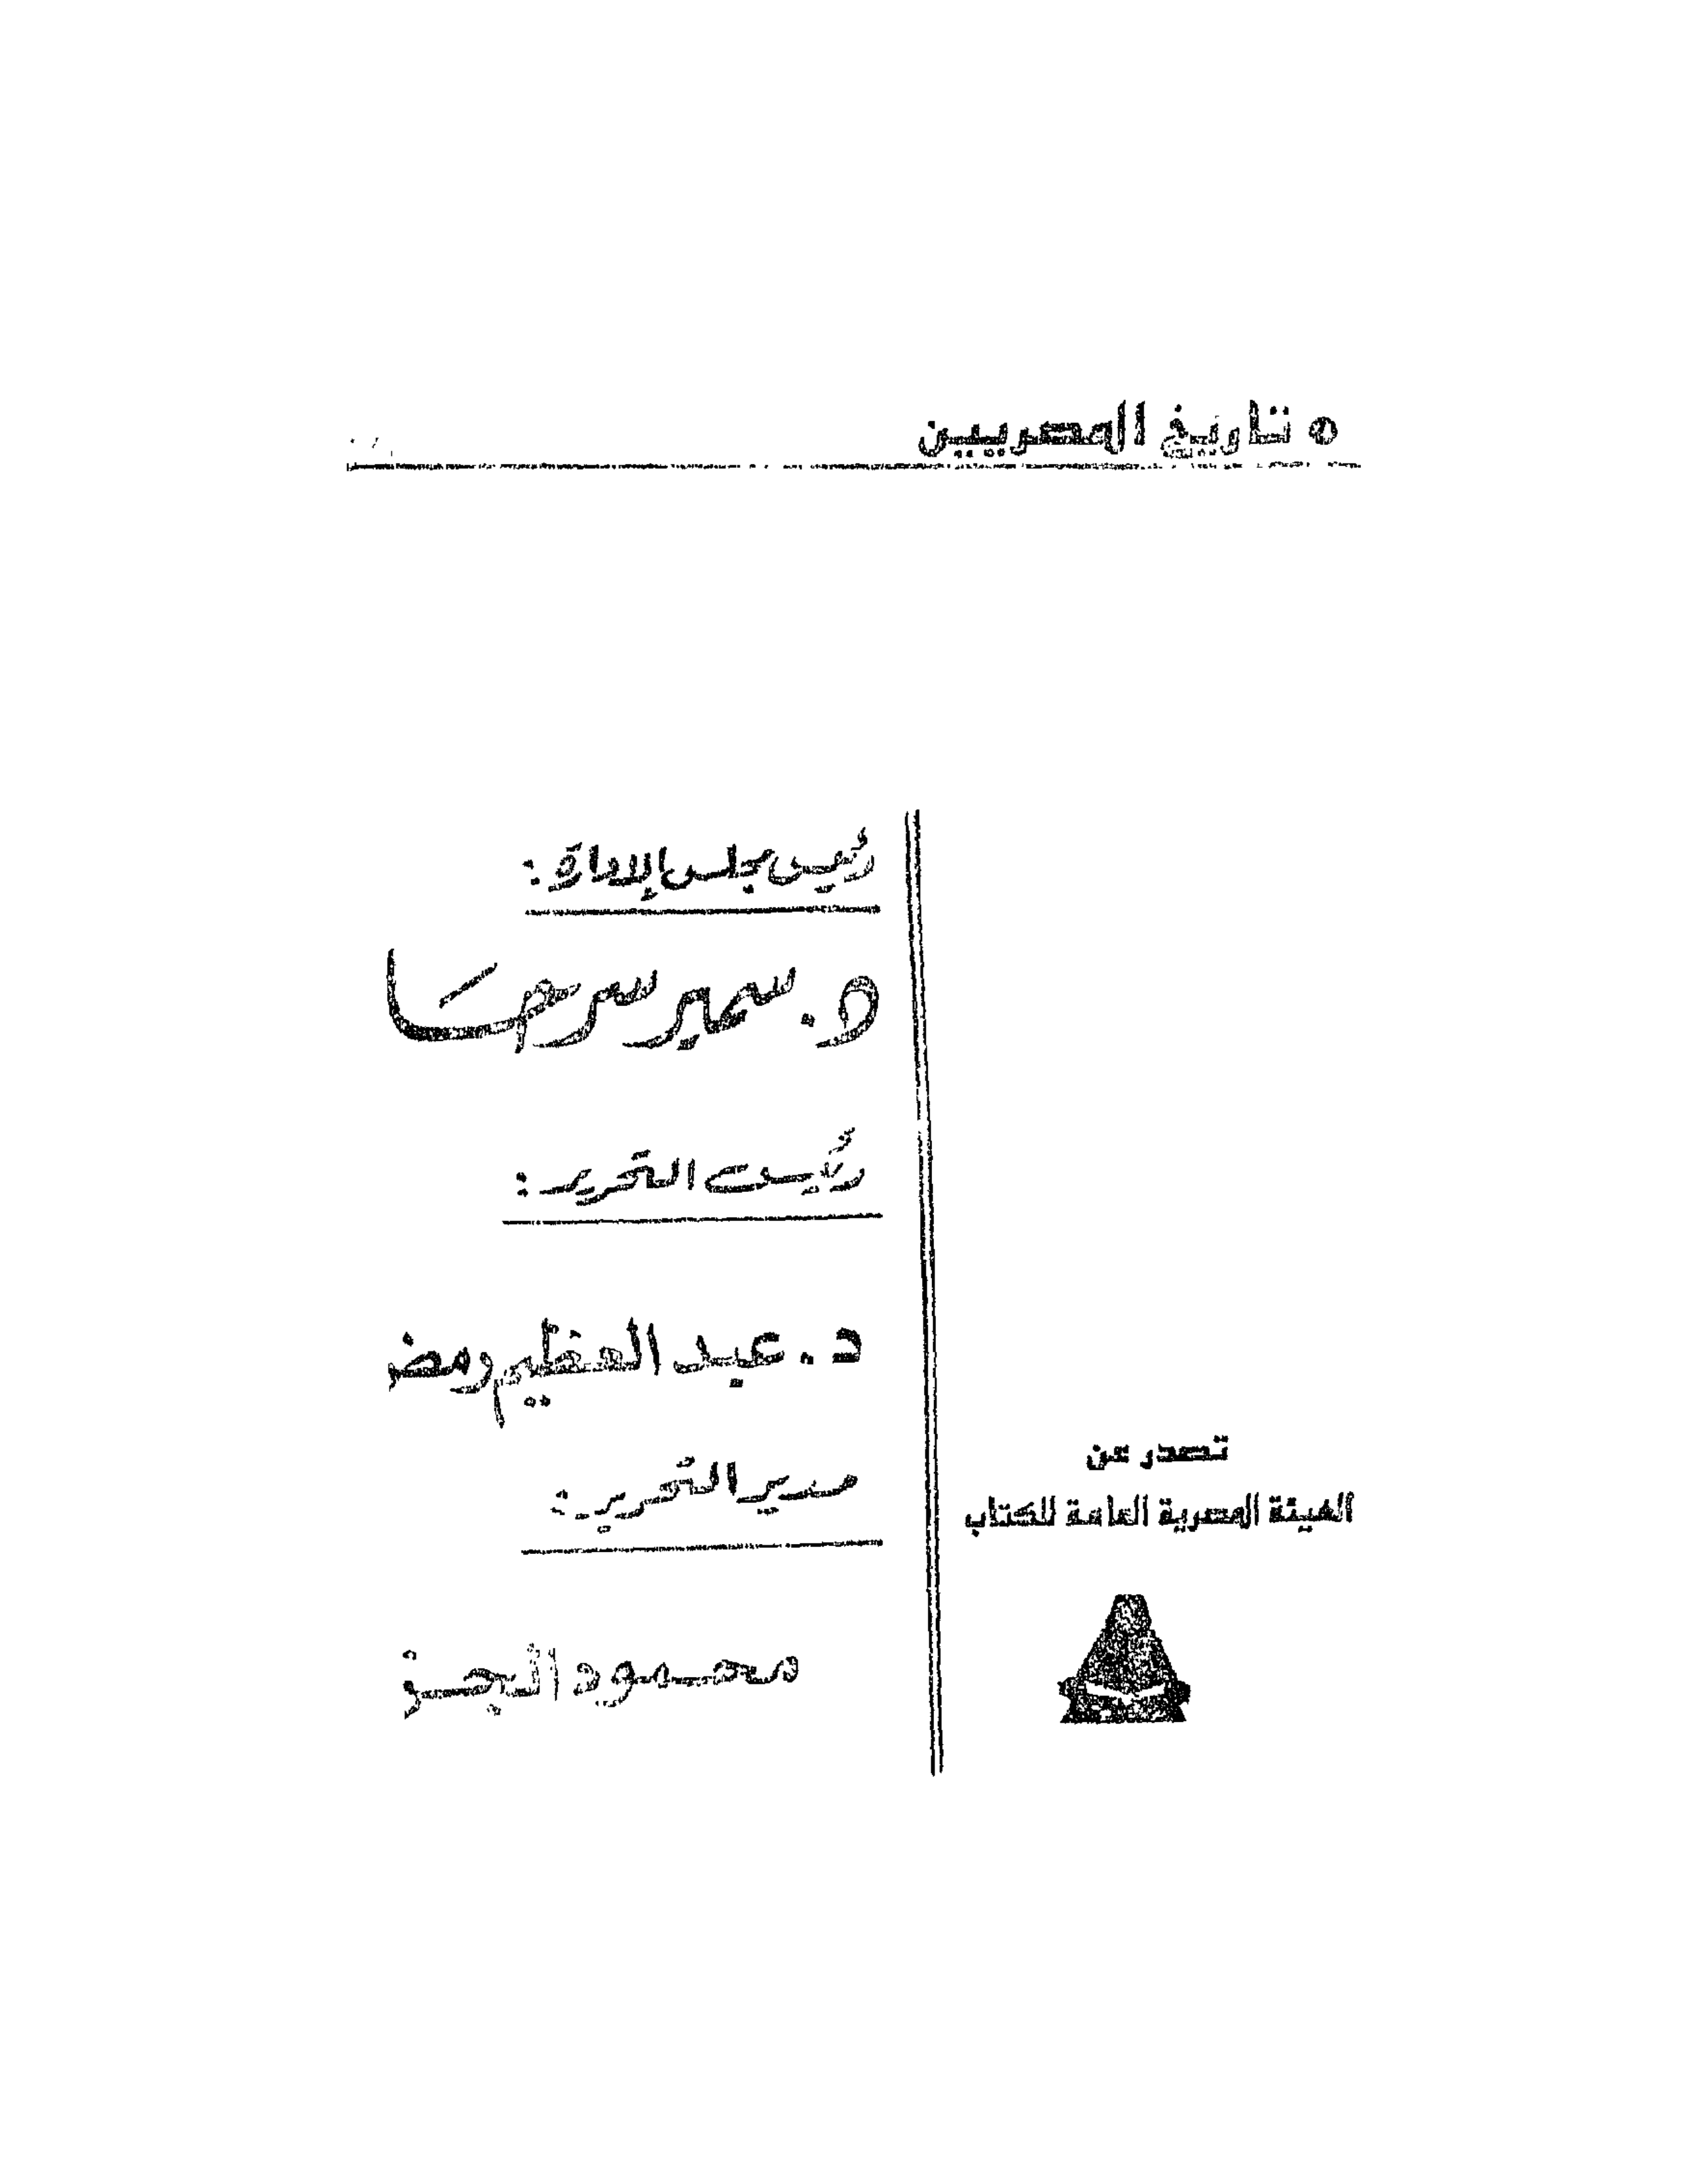 تاريخ المصريين
رئيس مجلس الإدارة :
د. سمير سرحا
رئيس التحرير :
د. عبد العظيم رمض
مدير التحرير :
محمود الجز
تصدر عن
الهيئة المصرية العامة للكتاب